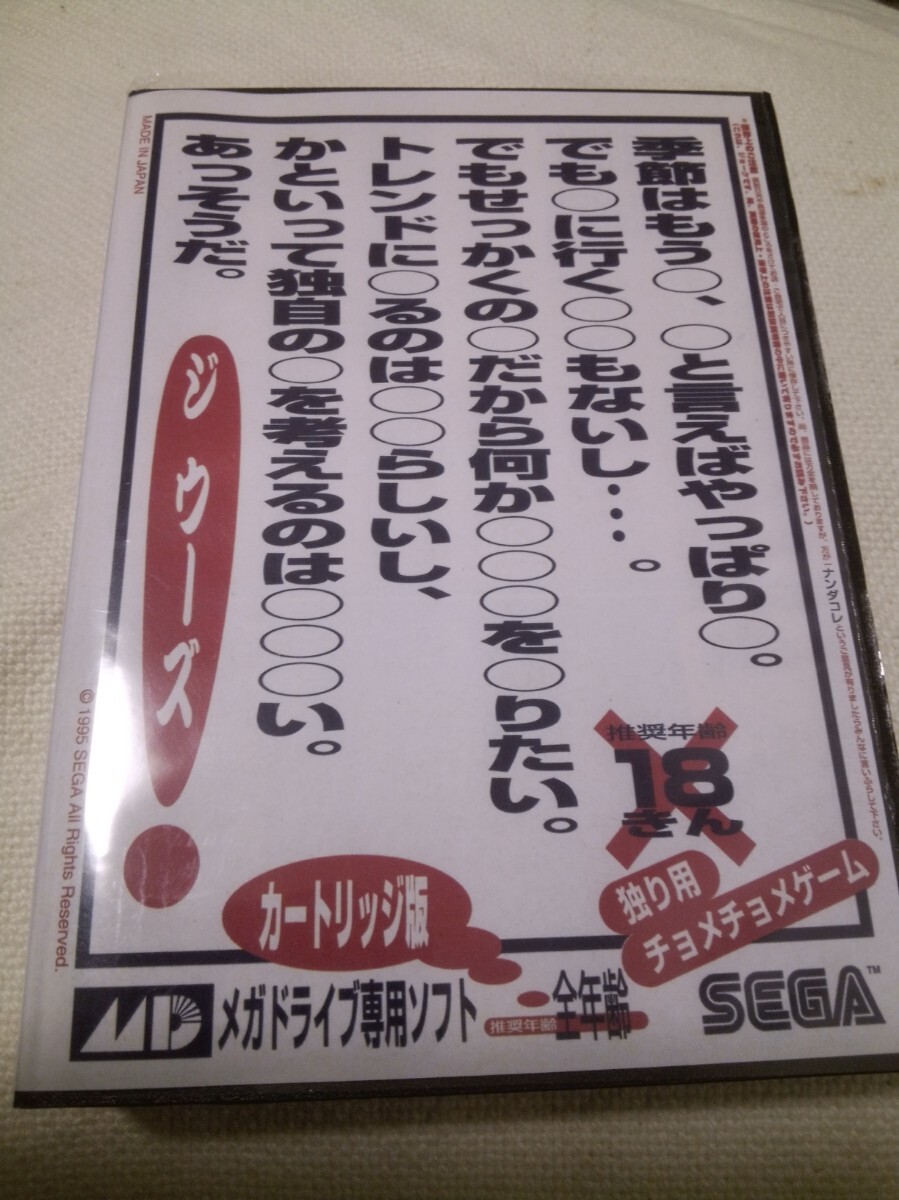 季節はもう○、○と言えばやっぱり○。
でも○に行く○○もないし・・・。
でもせっかくの○だから何か○○○を○りたい。
トレンドに○るのは○○らしいし、
かといって独自の○を考えるのは○○○い。
あっそうだ。
ジ ウーズ
推奨年齢
18
きん
独り用
チョメチョメゲーム
カートリッジ版
MADE IN JAPAN
© 1995 SEGA All Rights Reserved.
MD
メガドライブ専用ソフト
推奨年齢
全年齢
SEGA™